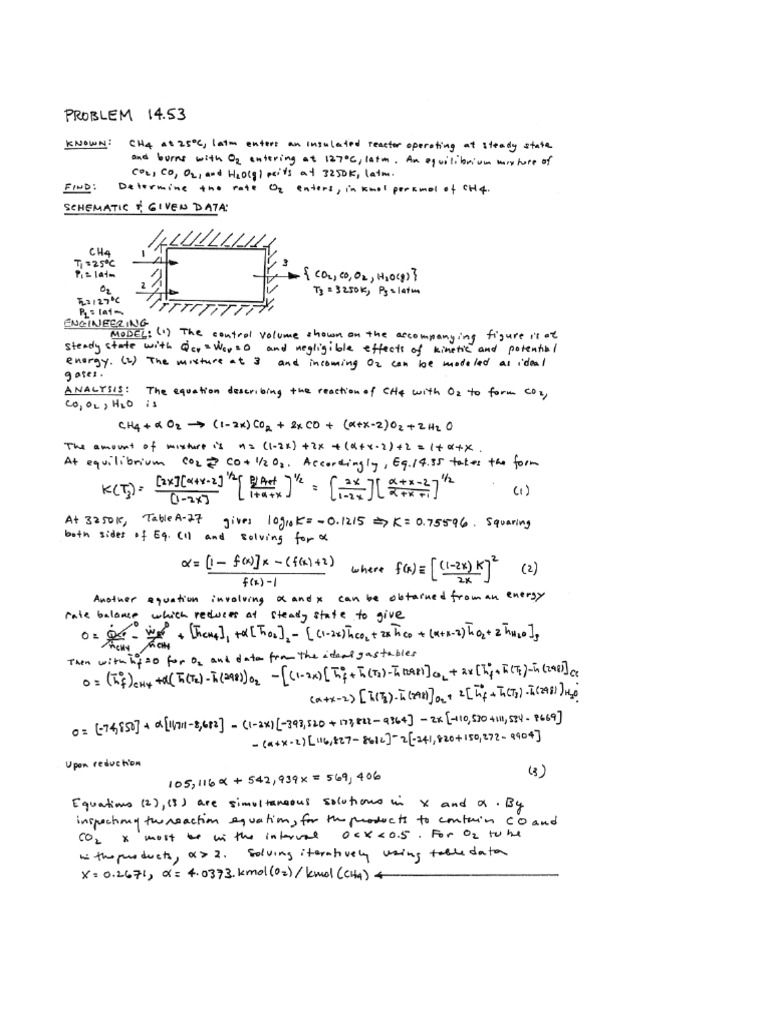 PROBLEM 14.53
KNOWN: CH4 at 25°C, 1atm enters an insulated reactor operating at steady state
and burns with O2 entering at 127°C, 1atm. An equilibrium mixture of
CO2, CO, O2, and H2O(g) exits at 3250K, 1atm.
FIND: Determine the rate O2 enters, in kmol per kmol of CH4.
SCHEMATIC & GIVEN DATA:
CH4 1
T1 = 25°C
P1 = 1atm
3 {CO2, CO, O2, H2O(g)}
T3 = 3250K, P3 = 1atm
O2 2
T2 = 127°C
P2 = 1atm
ENGINEERING
MODEL: (1) The control volume shown on the accompanying figure is at
steady state with Q̇cv = Ẇcv = 0 and negligible effects of kinetic and potential
energy. (2) The mixture at 3 and incoming O2 can be modeled as ideal
gases.
ANALYSIS: The equation describing the reaction of CH4 with O2 to form CO2,
CO, O2, H2O is
CH4 + αO2 → (1-2x)CO2 + 2xCO + (α+x-2)O2 + 2H2O
The amount of mixture is n = (1-2x) + 2x + (α+x-2) + 2 = 1+α+x.
At equilibrium CO2 ⇌ CO + 1/2 O2. Accordingly, Eq. 14.35 takes the form
K(T3) = [2x][α+x-2]^1/2 / [1-2x] [P/Pref / 1+α+x]^1/2 = [2x / 1-2x] [α+x-2 / α+x+1]^1/2 (1)
At 3250K, Table A-27 gives log10 K = -0.1215 ⇒ K = 0.75596. Squaring
both sides of Eq. (1) and solving for α
α = [1 - f(x)]x - (f(x)+2) / f(x)-1 where f(x) ≡ [(1-2x)K / 2x]^2 (2)
Another equation involving α and x can be obtained from an energy
rate balance which reduces at steady state to give
0 = Q̇cv/ṅCH4 - Ẇcv/ṅCH4 + [h̄CH4]1 + α[h̄O2]2 - [(1-2x)h̄CO2 + 2xh̄CO + (α+x-2)h̄O2 + 2h̄H2O]3
Then with h̄°f = 0 for O2 and data from the ideal gas tables
0 = (h̄°f)CH4 + α(h̄(T2) - h̄(298))O2 - [(1-2x)[h̄°f + h̄(T3) - h̄(298)]CO2 + 2x[h̄°f + h̄(T3) - h̄(298)]CO
(α+x-2)[h̄(T3) - h̄(298)]O2 + 2[h̄°f + h̄(T3) - h̄(298)]H2O
0 = [-74,850] + α[11,711 - 8,682] - (1-2x)[-393,520 + 173,822 - 9364] - 2x[-110,530 + 111,534 - 8669]
- (α+x-2)[116,827 - 8682] - 2[-241,820 + 150,272 - 9904]
Upon reduction
105,116α + 542,939x = 569,406 (3)
Equations (2), (3) are simultaneous solutions in x and α. By
inspection of the reaction equation, for the products to contain CO and
CO2 x must be in the interval 0 < x < 0.5. For O2 to be
in the products, α > 2. Solving iteratively using table data
x = 0.2671, α = 4.0373. kmol(O2)/kmol(CH4)